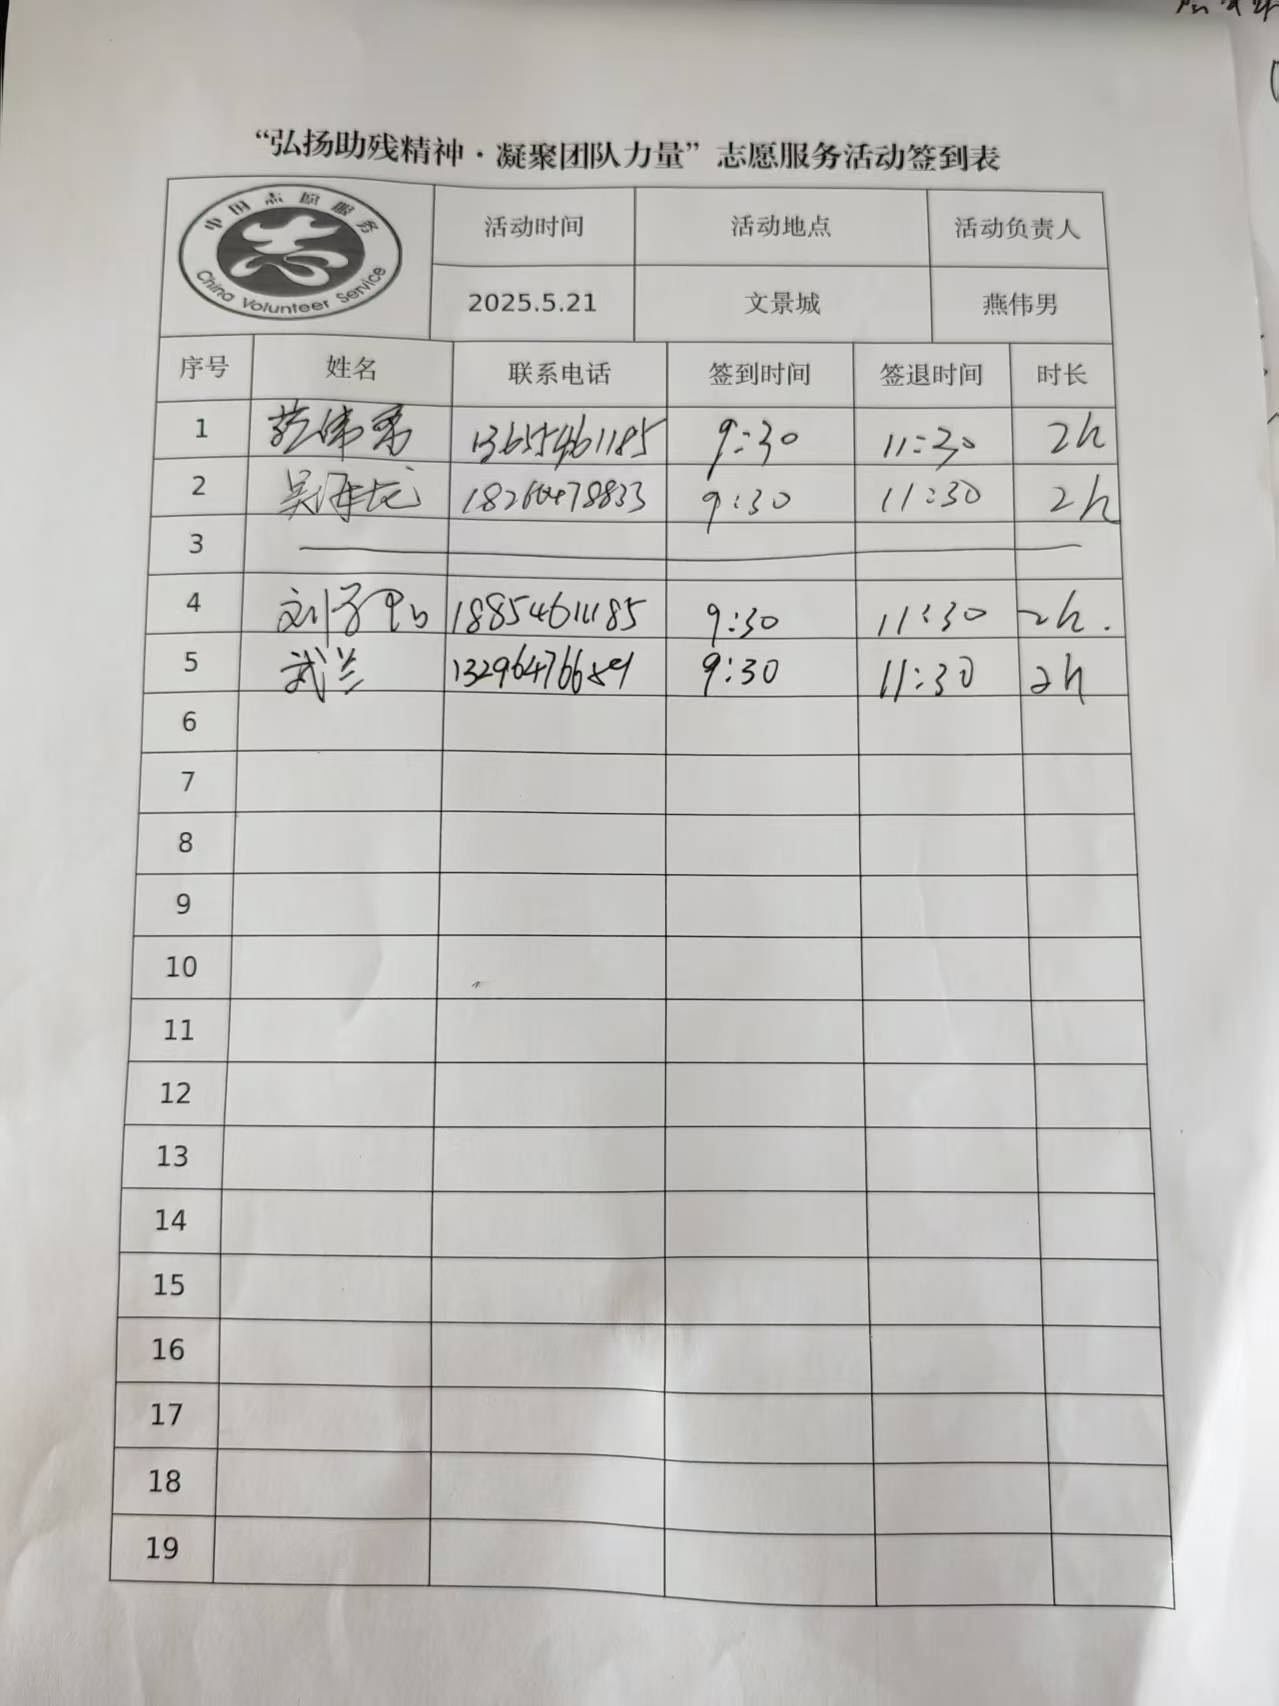 “弘扬助残精神·凝聚团队力量”志愿服务活动签到表
中国志愿服务
China Volunteer Service
活动时间 活动地点 活动负责人
2025.5.21 文景城 燕伟男
序号 姓名 联系电话 签到时间 签退时间 时长
1 燕伟男 13655461185 9:30 11:30 2h
2 吴海龙 18260478833 9:30 11:30 2h
3
4 刘子 18854611185 9:30 11:30 2h.
5 武兰 9:30 11:30 2h
6
7
8
9
10
11
12
13
14
15
16
17
18
19